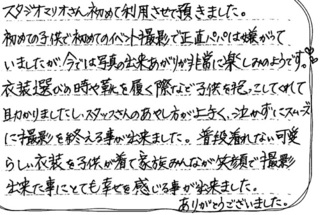 スタジオマリオさん初めて利用させて頂きました。
初めての子供で初めてのイベント撮影で正直パパは嫌がって
いましたが、今では写真の出来あがりが非常に楽しみのようです。
衣装選びの時や靴を履く際など子供を抱っこしてくれて
助かりましたし、スタッフさんのあやし方が上手く、泣かずにスムーズ
に撮影を終える事が出来ました。普段着れない可愛
らしい衣装を子供が着て家族みんなが笑顔で撮影
出来た事にとても幸せを感じる事が出来ました。
ありがとうございました。